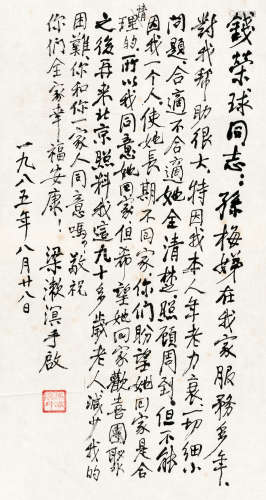 錢榮球同志：孫梅娣在我家服務多年、
對我幫助很大，特因我本人年老力衰，一切細小
問題、合適不合適她全清楚，照顧周到。但不能
因我一个人，使她長期不回家，你们盼望她回家是合
情
理的，所以我同意她回家，但希望她回家歡喜團聚
之後再来北京照料我这九十多歲老人，減少我的
困難，你和你一家人同意嗎？敬祝
你们全家幸福安康！
梁漱溟手啟
一九八五年八月廿八日